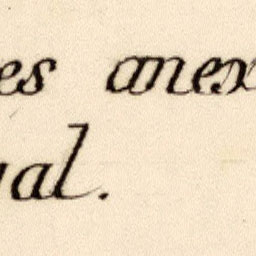 es anex
al.